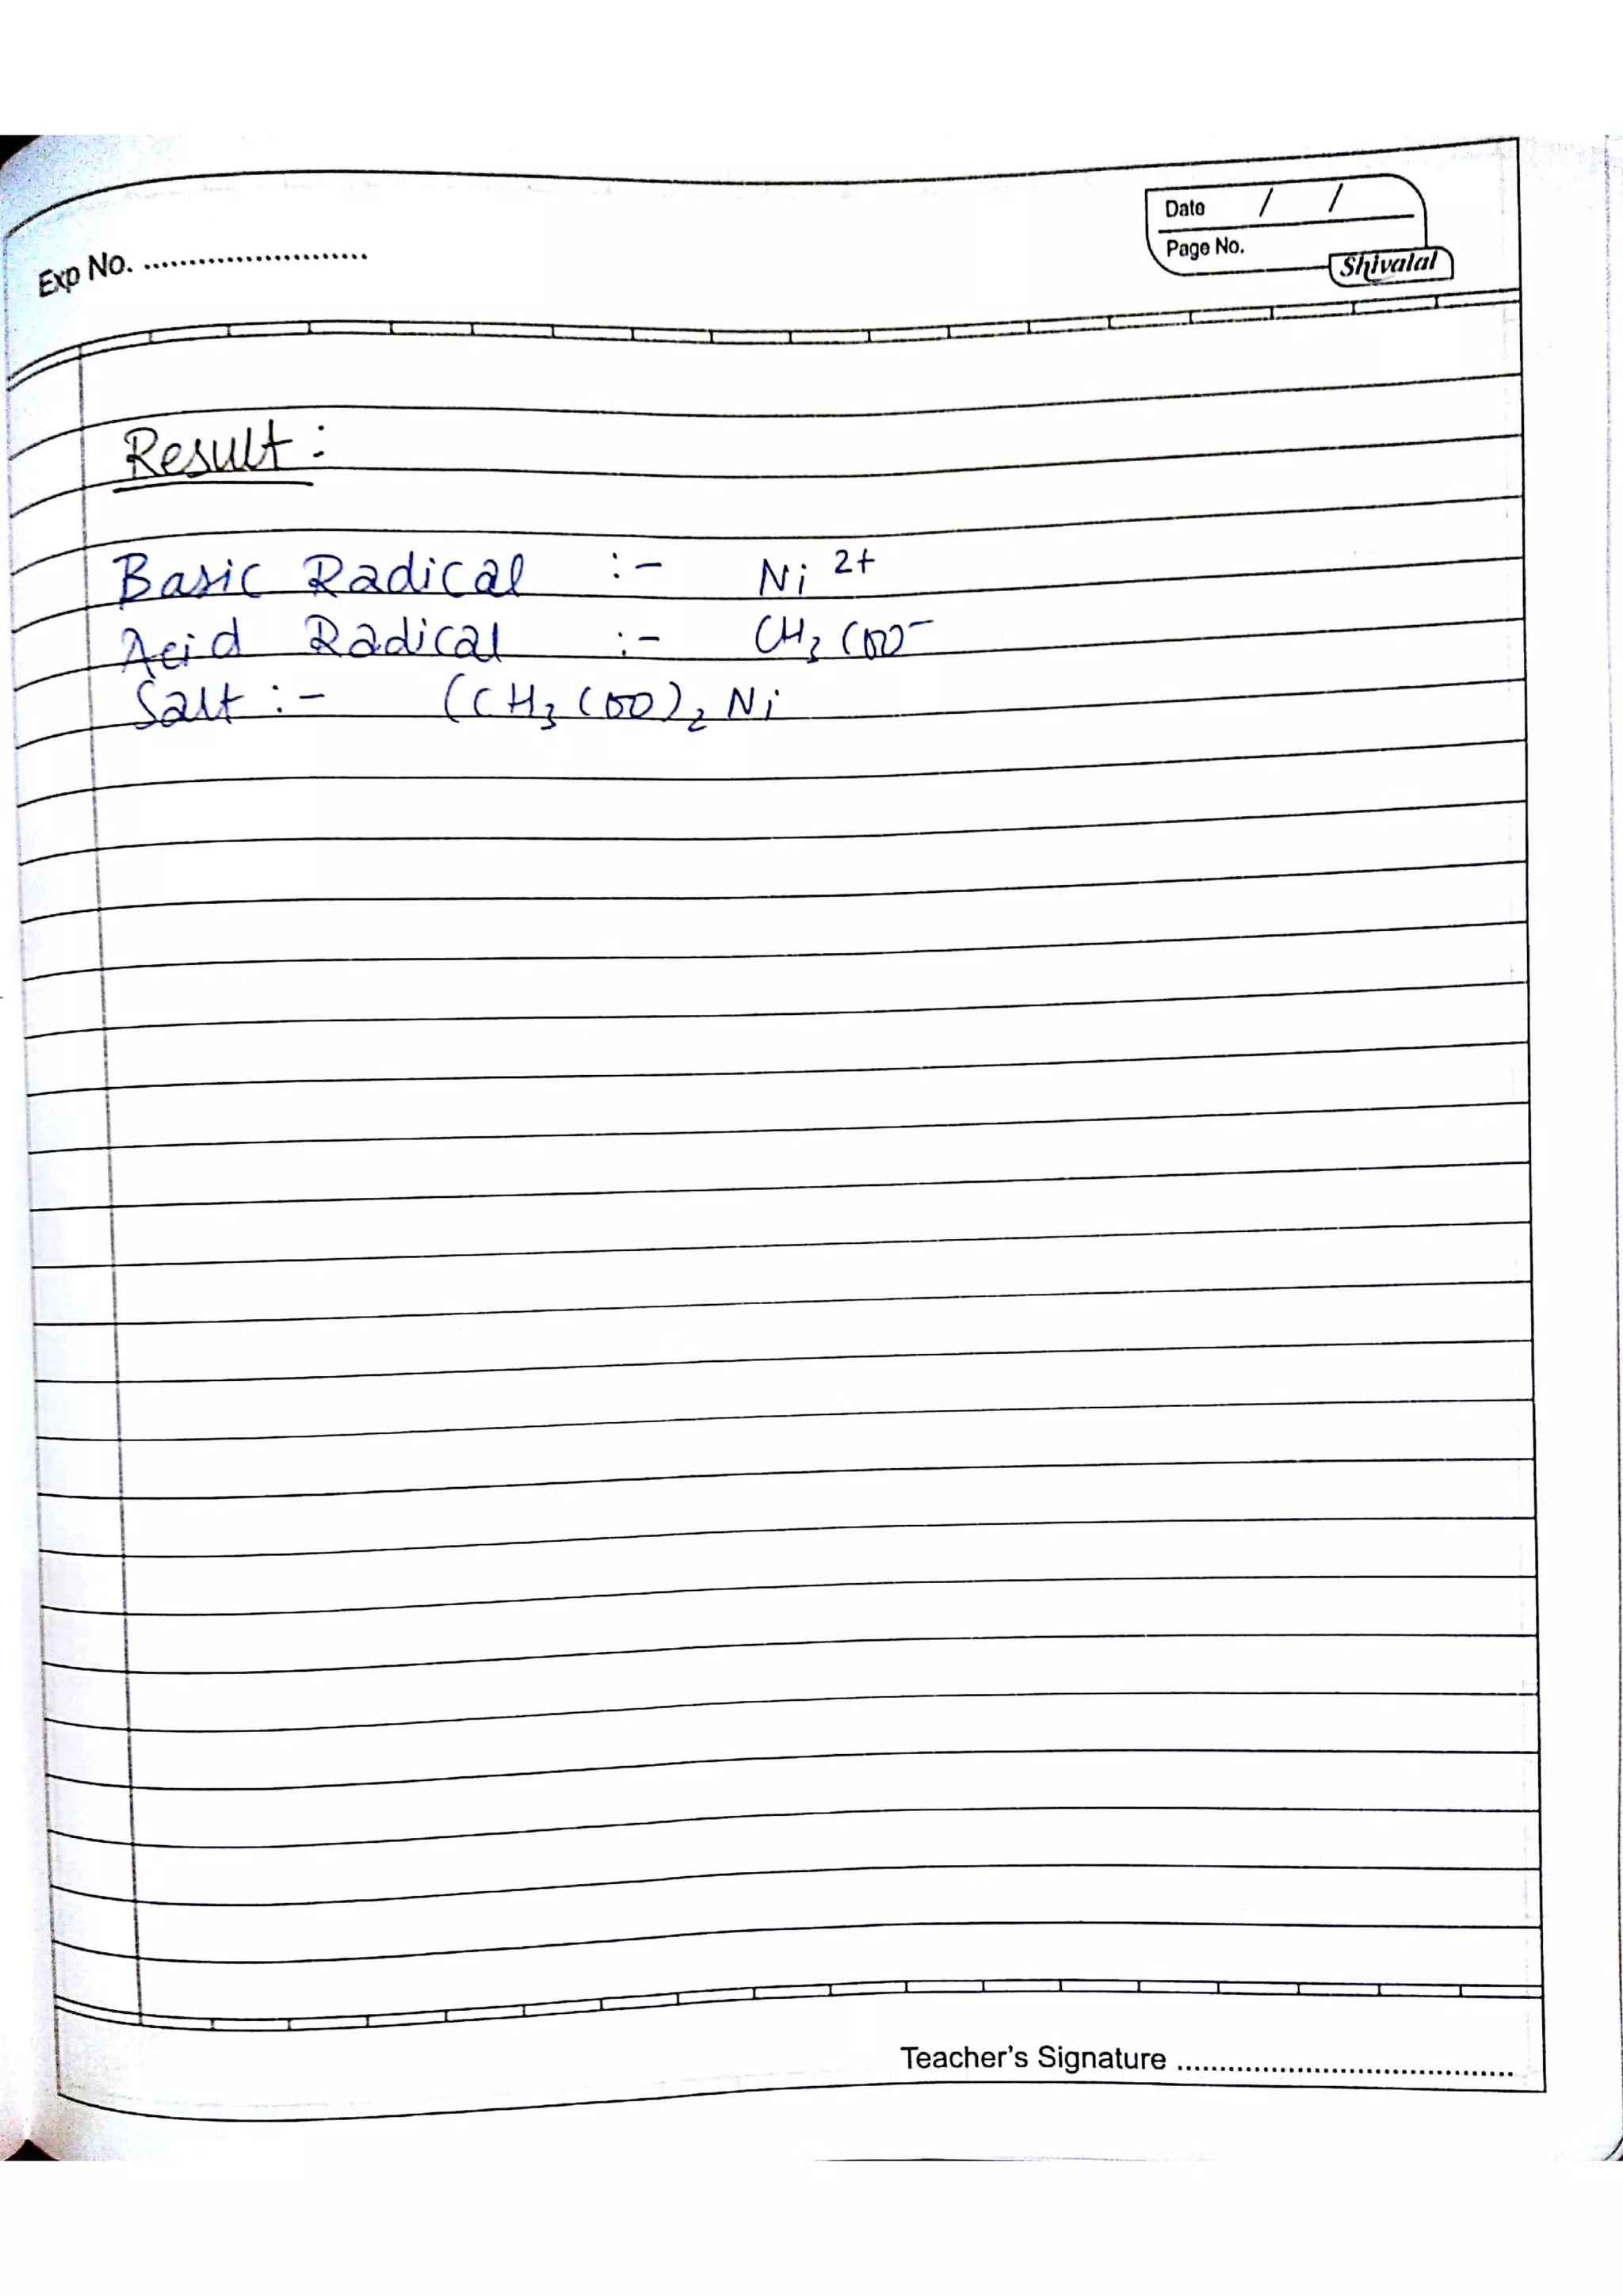 Date / /
Exp No. ..........................
Page No.
Shivalal
Result :
Basic Radical :- Ni 2+
Acid Radical :- CH3 COO-
Salt :- (CH3 COO)2 Ni
Teacher's Signature ........................................